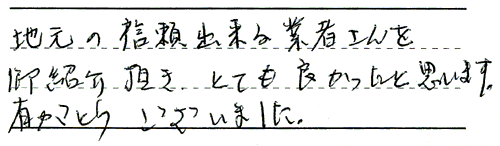 地元の信頼出来る業者さんを
御紹介頂き、とても良かったと思います。
有がとうございました。